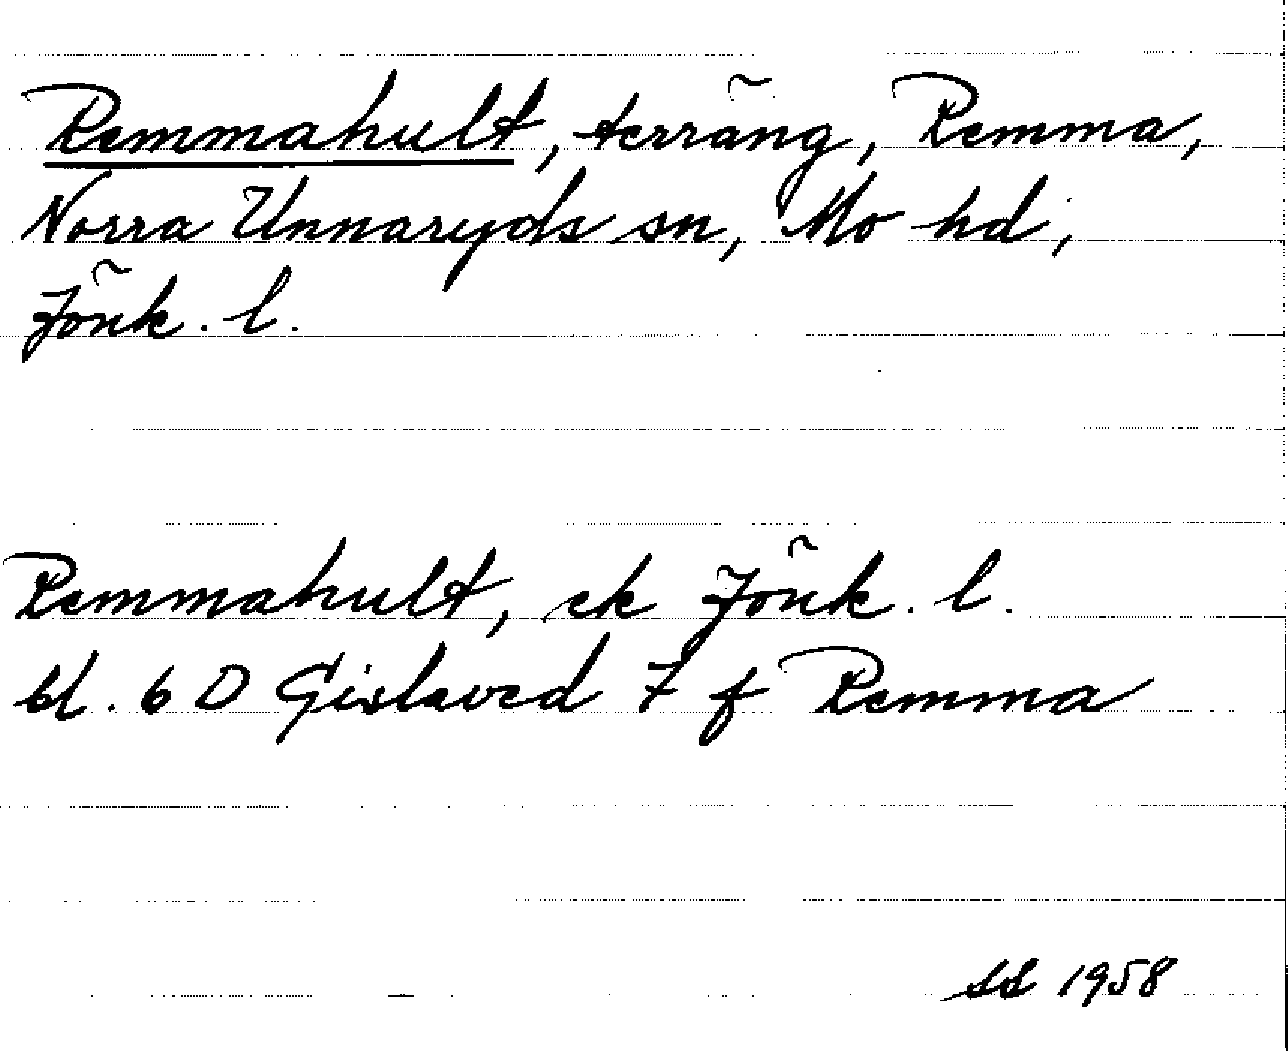 Remmahult, terräng, Remma,
Norra Unnaryds sn, Mo hd,
Jönk. l.
Remmahult, ek Jönk. l.
bl. 6 D Gislaved 7 f Remma
SS 1958